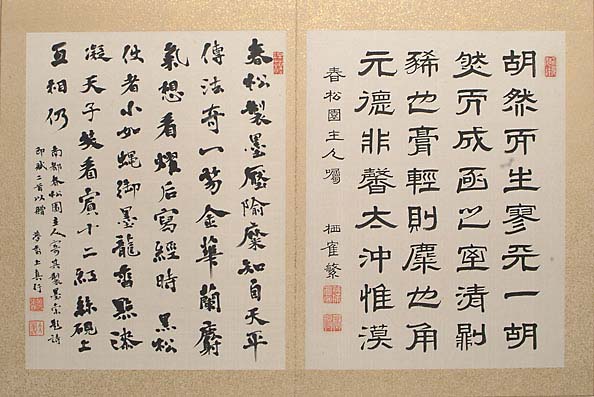 胡然而生寥天一胡
然而成函之室清剛
豨也膏輕則麋也角
元德非馨太沖惟漠
春松園主人囑 栖雀繁
春松製墨壓隃糜知自天平
傳法奇一笏金華蘭麝
氣想看燿后寫經時 黑松
使者小如蝇御墨龍香點漆
凝天子笑看賓十二紅絲硯上
互相仍
南都春松園主人寄其製墨索題詩
即賦二首以贈